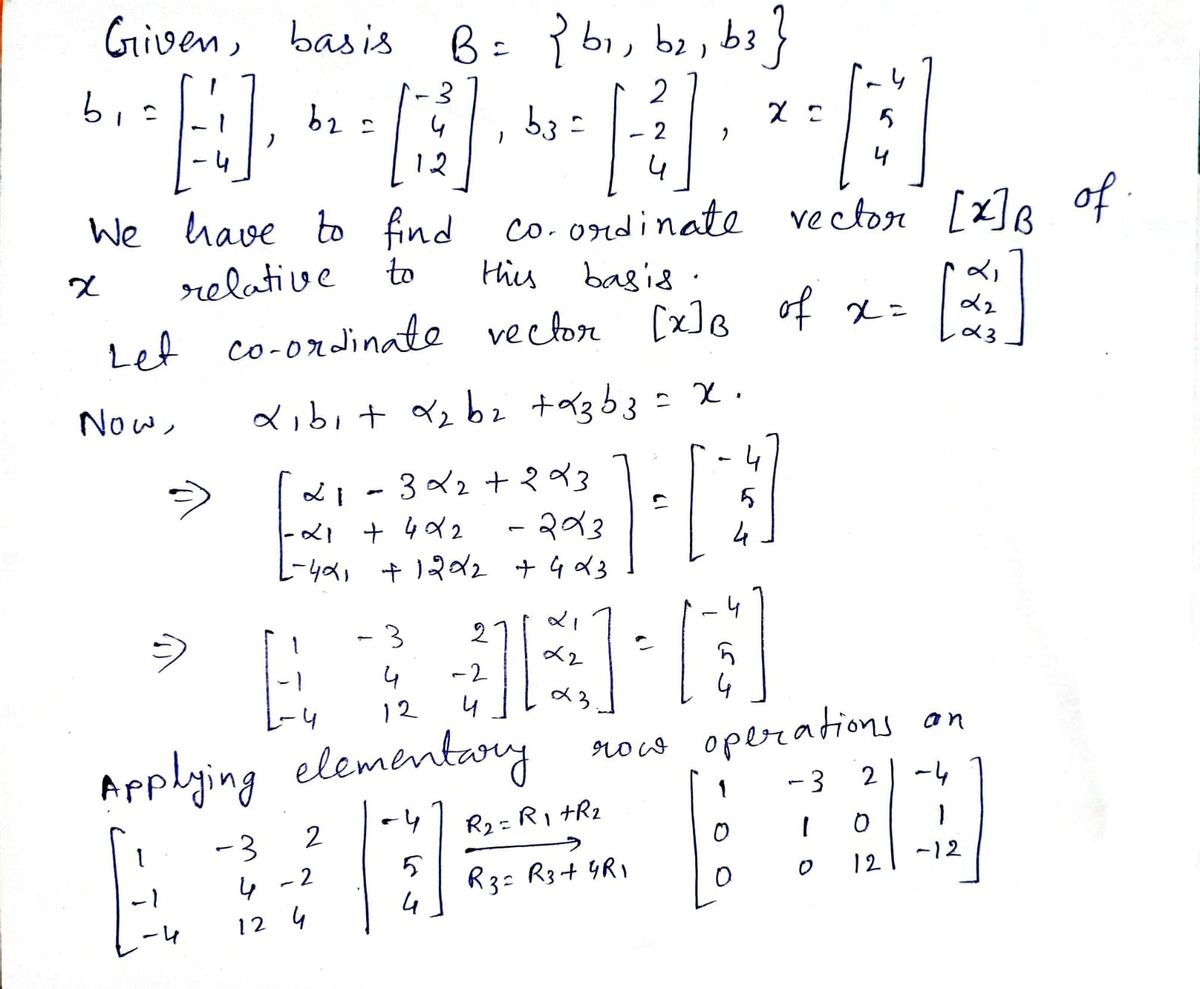 Given, basis B = {b1, b2, b3}
b1 = [1 -1 -4], b2 = [-3 4 12], b3 = [2 -2 4], x = [-4 5 4]
We have to find co-ordinate vector [x]B of
x relative to this basis.
Let co-ordinate vector [x]B of x = [α1 α2 α3]
Now, α1b1 + α2b2 + α3b3 = x.
⇒ [α1 - 3α2 + 2α3
-α1 + 4α2 - 2α3
-4α1 + 12α2 + 4α3] = [-4 5 4]
⇒ [1 -3 2
-1 4 -2
-4 12 4] [α1 α2 α3] = [-4 5 4]
Applying elementary row operations on
[1 -3 2 | -4
-1 4 -2 | 5
-4 12 4 | 4]
R2 = R1 + R2
R3 = R3 + 4R1
[1 -3 2 | -4
0 1 0 | 1
0 0 12 | -12]